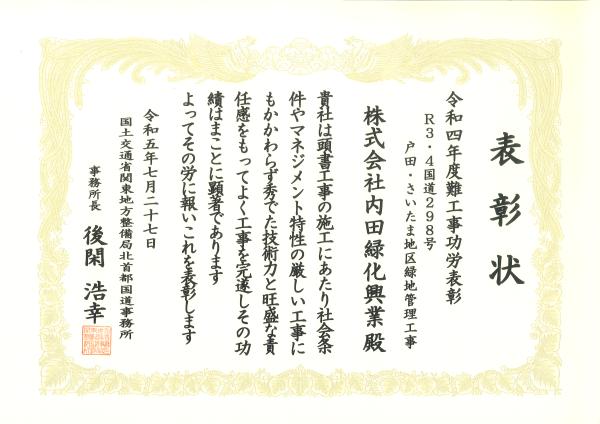 表彰状
令和四年度難工事功労表彰
R3・4国道298号
戸田・さいたま地区緑地管理工事
株式会社内田緑化興業殿
貴社は頭書工事の施工にあたり社会条
件やマネジメント特性の厳しい工事に
もかかわらず秀でた技術力と旺盛な責
任感をもってよく工事を完遂しその功
績はまことに顕著であります
よってその労に報いこれを表彰します
令和五年七月二十七日
国土交通省関東地方整備局北首都国道事務所
事務所長 後閑浩幸